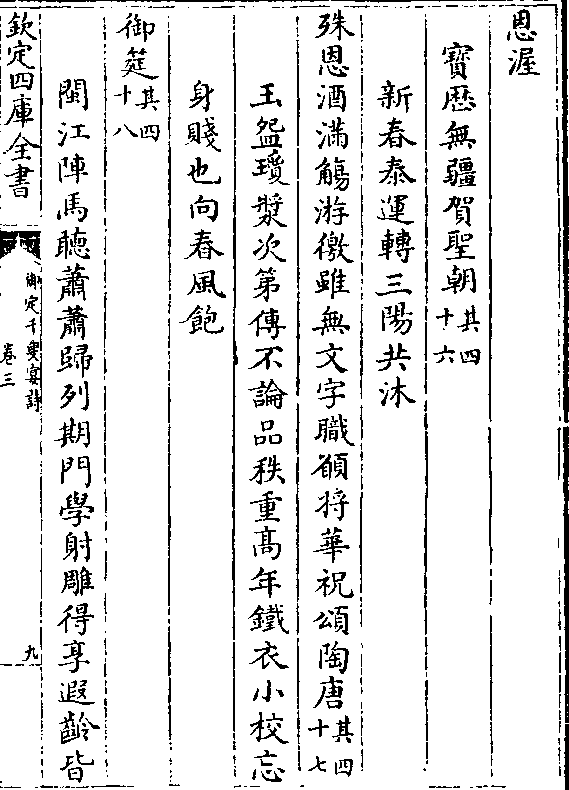 恩渥
寶厯無疆賀聖朝其四十六
新春泰運轉三陽共沐
殊恩酒滿觴游徼雖無文字職願將華祝頌陶唐其四十七
玉盌瓊漿次第傳不論品秩重髙年鐵衣小校忘
身賤也向春風飽
御筵其四十八
閩江陣馬聴蕭蕭歸列期門學射雕得享遐齡皆
欽定四庫全書
御定千叟宴詩
卷三
九